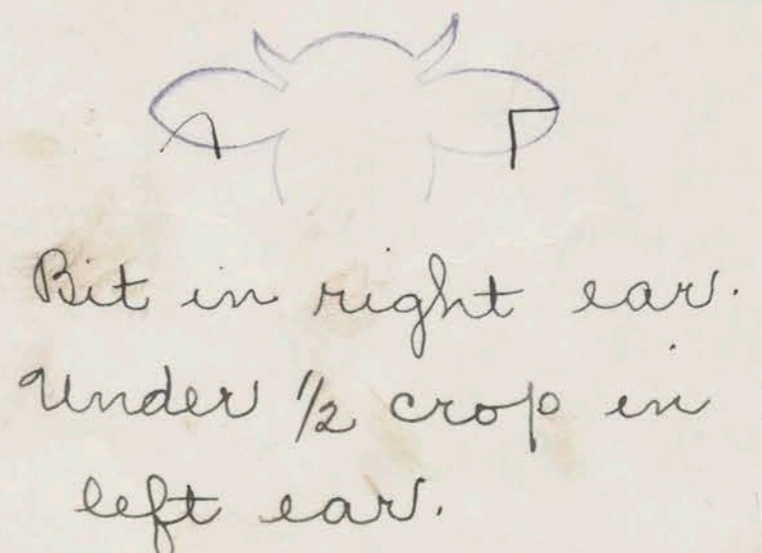 Bit in right ear.
Under 1/2 crop in
left ear.